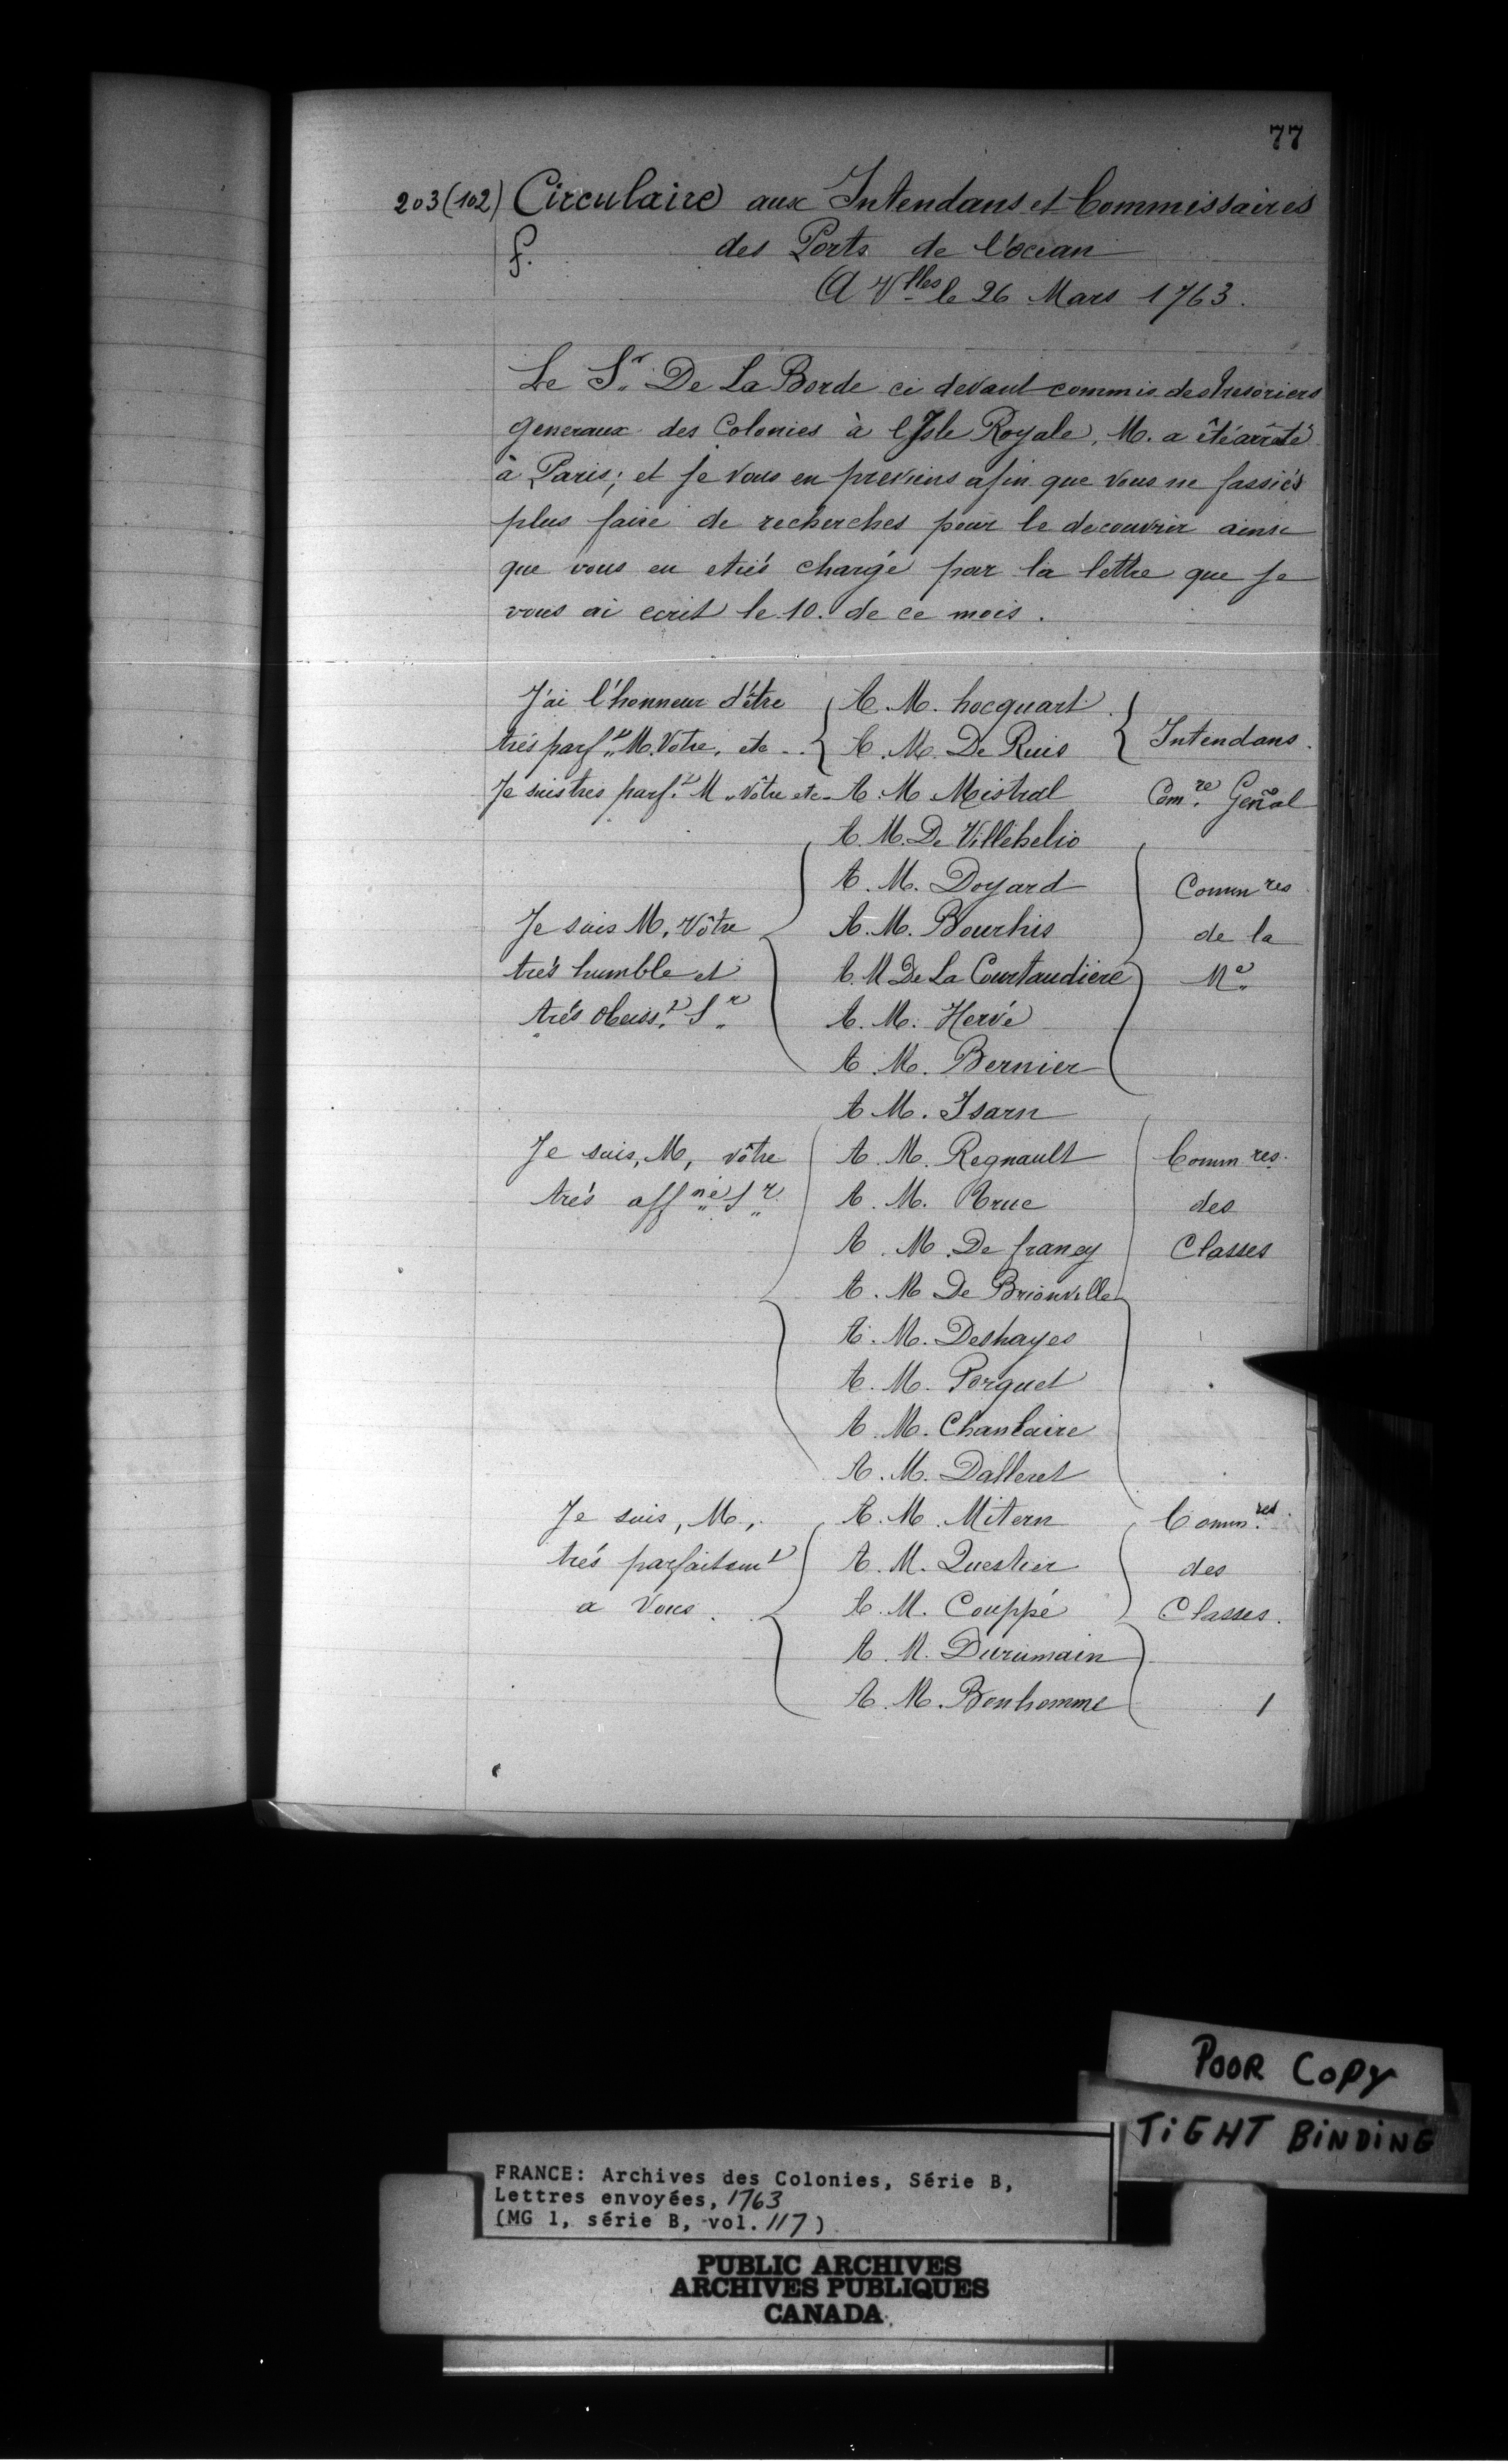 77
203 (102) Circulaire aux Intendans et Commissaires
f. des Ports de l'ocean
A Vlles le 26 Mars 1763.
Le Sr. De La Borde ci devant commis des tresoriers
generaux des Colonies à l'Isle Royale, M. a été arrêté
à Paris; et je vous en previens afin que vous ne fassiés
plus faire de recherches pour le decouvrir ainsi
que vous en etiés chargé par la lettre que je
vous ai ecrit le 10. de ce mois.
J'ai l'honneur d'être { A. M. hocquart } 
trés parft. M. Votre, etc. { A. M. De Ruis } Intendans.
Je suis tres parft. M. Vôtre etc. A. M Mistral Comre. Genãl
A. M. De Villehelio
A. M. Doyard Commres
Je suis M, Vôtre A. M. Bourhis de la
trés humble et A. M De La Courtaudiere Me.
trés obeisst. Sr. A. M. Hervé
A. M. Bernier
A M. Isarn
Je suis, M, vôtre A. M. Regnault Commres.
trés affné Sr. A. M. Bruc des
A. M. De francy Classes
A. M De Brionville
A. M. Deshayes
A. M. Porquet
A. M. Chanlaire
A. M. Dalleret
Je suis, M, A. M. Mitern Commres.
trés parfaitemt A. M. Questier des
a Vous. A. M. Couppé Classes.
A. M. Durumain
A. M. Bonhomme /
POOR COPY
TIGHT BINDING
FRANCE: Archives des Colonies, Série B,
Lettres envoyées, 1763
(MG 1, série B, vol. 117)
PUBLIC ARCHIVES
ARCHIVES PUBLIQUES
CANADA